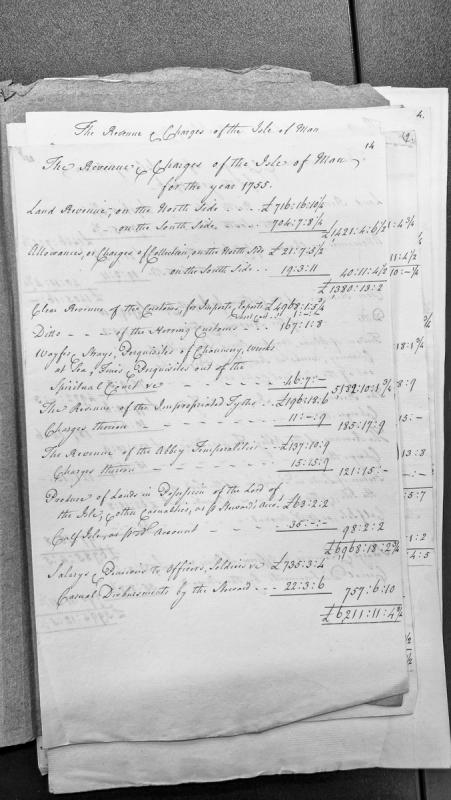 The Revenue & Charges of the Isle of Man
14
The Revenue & Charges of the Isle of Man
for the year 1755.
Land Revenue, on the North Side - - - £716:16:10½
- on the South Side - - - 704:7:8¼ £1421:4:6½
Allowances, or Charges of Collection, on the North Side £21:7:5½
on the South Side - - 19:3:11 40:11:4½
£1380:13:2
Clear Revenue of the Customs, for Imports, Exports £4968:1:5¾
Ditto - - - of the Herring Customs - - - 167:1:8
Wayfes, Strays, Perquisites of Chancery, Wrecks
at Sea, Fines & Perquisites out of the
Spiritual Court &c - - - - - 46:7:- 5182:10:1¾
The Revenue of the Impropriated Tythe - - £196:18:6
Charges thereon - - - - - - 11:-:9 185:17:9
The Revenue of the Abbey Temporalities - - £137:10:9
Charges thereon - - - - - 15:15:9 121:15:-
Produce of Lands in Possession of the Lord of
the Isle, & other Casualties, as p Steward's Acco. £63:2:2
Calf Isle, as pr Do Account - - 35:-:- 98:2:2
£6968:18:2¾
Salarys & Pensions to Officers, Soldiers &c £735:3:4
Casual Disbursments by the Steward - - - 22:3:6 757:6:10
£6211:11:4¾
4.
2.
1:4¾
11:4½
10:-¼
18:1¾
8:9
15:-
13:8
-:-
5:7
1:2
4:5